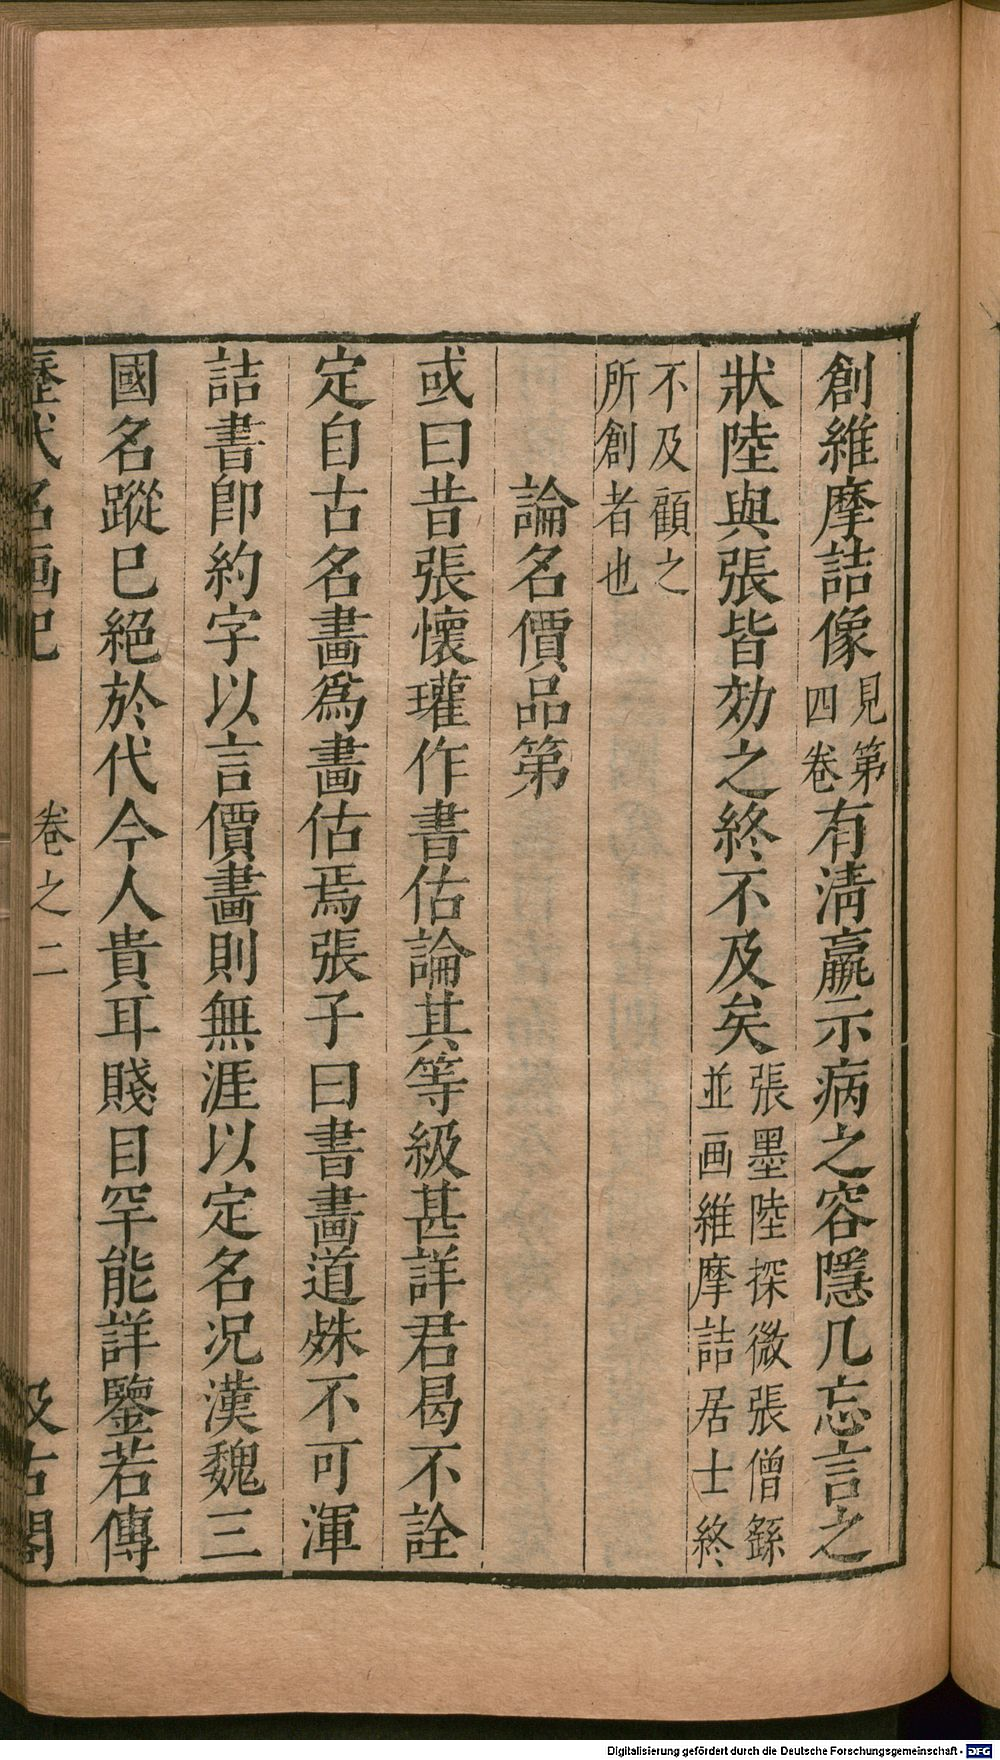 創維摩詰像見第四卷有清羸示病之容隱几忘言之
狀陸與張皆効之終不及矣張墨陸探微張僧繇並画維摩詰居士終
不及顧之所創者也
論名價品第
或曰昔張懷瓘作書估論其等級甚詳君曷不詮
定自古名畫爲畫估焉張子曰書畫道殊不可渾
詰書卽約字以言價畫則無涯以定名况漢魏三
國名蹤巳絕於代今人貴耳賤目罕能詳鑒若傳
歷代名画記 卷之二 汲古閣
Digitalisierung gefördert durch die Deutsche Forschungsgemeinschaft - DFG